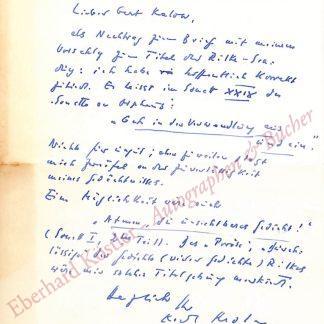 Lieber Gert Kalow,
als Nachtrag zum Brief mit meinem
Vorschlag zum Titel der Rilke-Sen-
dung: ich habe hoffentlich korrekt
zitiert. Es heisst im Sonett XXIX der
Sonette an Orpheus:
"Geh in der Verwandlung aus
und ein."
Nichts für ungut, ohne
mich an der Zuverlässigkeit
meines Gedächtnisses.
Eine Möglichkeit wäre auch
"Atmen, du unsichtbares Gedicht!"
(Sonett I, 2ter Teil). Das
der Gedichte (vieler Gedichte) Rilkes
wäre mit solcher Titelgebung
Herzlich Ihr
Karl Krolow
Eberhard Köstler Autographen & Bücher